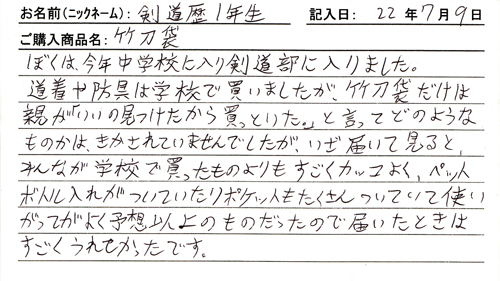 お名前(ニックネーム): 剣道歴1年生 記入日: 22年7月9日
ご購入商品名: 竹刀袋
ぼくは、今年中学校に入り剣道部に入りました。
道着や防具は学校で買いましたが、竹刀袋だけは
親が「いいの見つけたから買っといた。」と言ってどのような
ものかは、きかされていませんでしたが、いざ届いて見ると、
みんなが学校で買ったものよりもすごくカッコよく、ペット
ボトル入れがついていたりポケットもたくさんついていて使い
がってがよく予想以上のものだったので届いたときは
すごくうれしかったです。